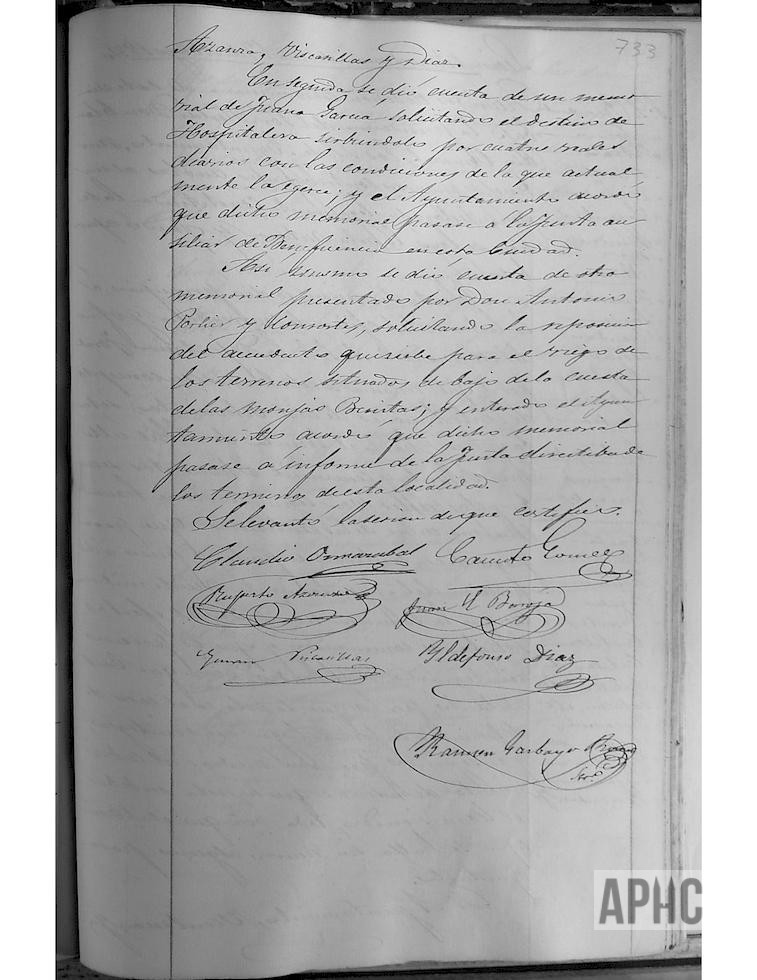 733
Azanza, Viscasillas y Diaz.
En seguida se dió cuenta de un memo-
rial de Juana Garcia solicitando el destino de
Hospitalera sirbiendolo por cuatro reales
diarios con las condiciones de la que actual-
mente la egerce; y el Ayuntamiento acordó
que dicho memorial pasase a la Junta au-
siliar de Beneficencia en esta Ciudad.
Asi mismo se dió cuenta de otro
memorial presentado por Don Antonio
Porlier y Consortes, solicitando la reposicion
del que sirbe para el riego de
los terrenos situados de bajo de la cuesta
de las monjas Benitas; y enterado el Ayun-
tamiento acordó que dicho memorial
pasase á informe de la Junta directiba de
los terminos de esta localidad.
Se levantó la sesion de que certifico.
Claudio Ormazabal Gomez
Ruperto Azanza Juan Borja
Viscasillas Yldefonso Diaz
Ramon Garbayo
Srio.
APHC